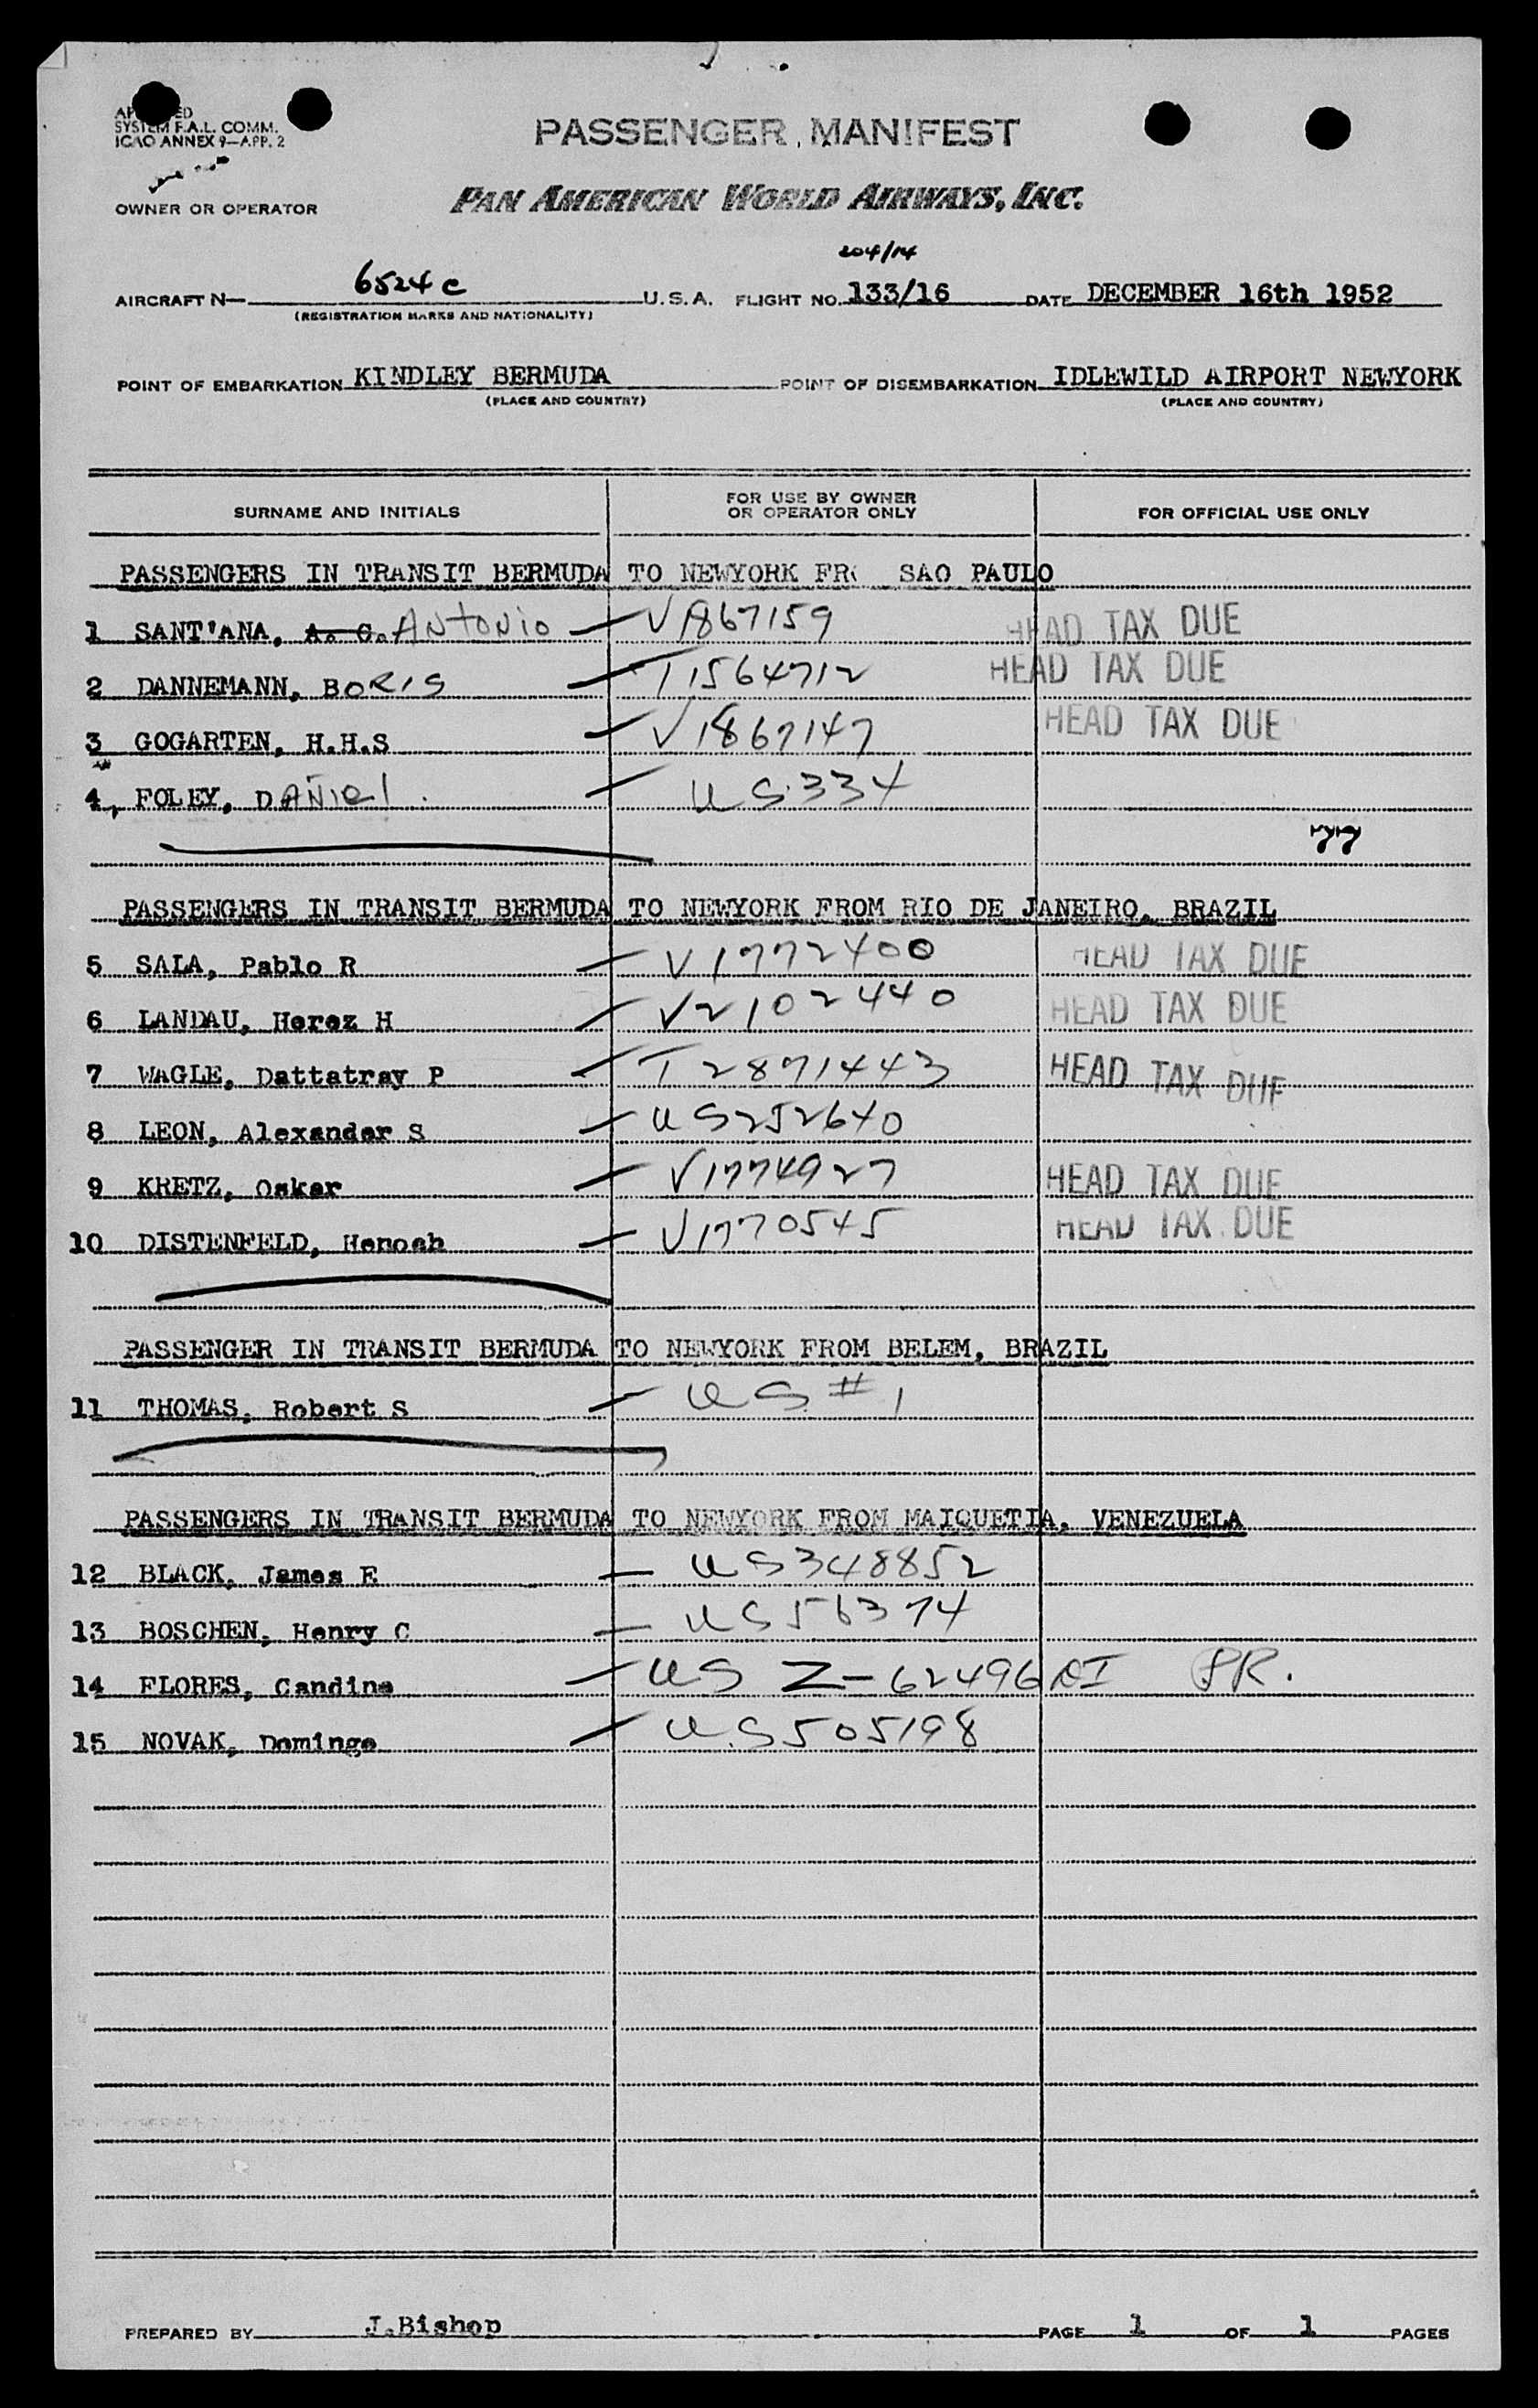 SYSTEM F.A.L. COMM.
ICAO ANNEX 9—APP. 2
PASSENGER MANIFEST
OWNER OR OPERATOR
PAN AMERICAN WORLD AIRWAYS, INC.
204/14
AIRCRAFT N— 6524C U.S.A. FLIGHT NO. 133/16 DATE DECEMBER 16th 1952
(REGISTRATION MARKS AND NATIONALITY)
POINT OF EMBARKATION KINDLEY BERMUDA POINT OF DISEMBARKATION IDLEWILD AIRPORT NEWYORK
(PLACE AND COUNTRY) (PLACE AND COUNTRY)
SURNAME AND INITIALS FOR USE BY OWNER OR OPERATOR ONLY FOR OFFICIAL USE ONLY
PASSENGERS IN TRANSIT BERMUDA TO NEWYORK FR SAO PAULO
1 SANT'ANA, A. C. ANtONio V1867159 HEAD TAX DUE
2 DANNEMANN, BORIS T1564712 HEAD TAX DUE
3 GOGARTEN, H.H.S V1867147 HEAD TAX DUE
4, FOLEY, DANiel. US 334
77
PASSENGERS IN TRANSIT BERMUDA TO NEWYORK FROM RIO DE JANEIRO, BRAZIL
5 SALA, Pablo R V1772400 HEAD TAX DUE
6 LANDAU, Herez H V2102440 HEAD TAX DUE
7 WAGLE, Dattatray P T2871443 HEAD TAX DUE
8 LEON, Alexander S US252640
9 KRETZ, Oskar V1774927 HEAD TAX DUE
10 DISTENFELD, Henoch V1770545 HEAD TAX DUE
PASSENGER IN TRANSIT BERMUDA TO NEWYORK FROM BELEM, BRAZIL
11 THOMAS, Robert S US # 1
PASSENGERS IN TRANSIT BERMUDA TO NEWYORK FROM MAIQUETIA, VENEZUELA
12 BLACK, James E US348852
13 BOSCHEN, Henry C US56374
14 FLORES, Candina US Z-62496 DI PR.
15 NOVAK, Domingo US505198
PREPARED BY J.Bishop PAGE 1 OF 1 PAGES